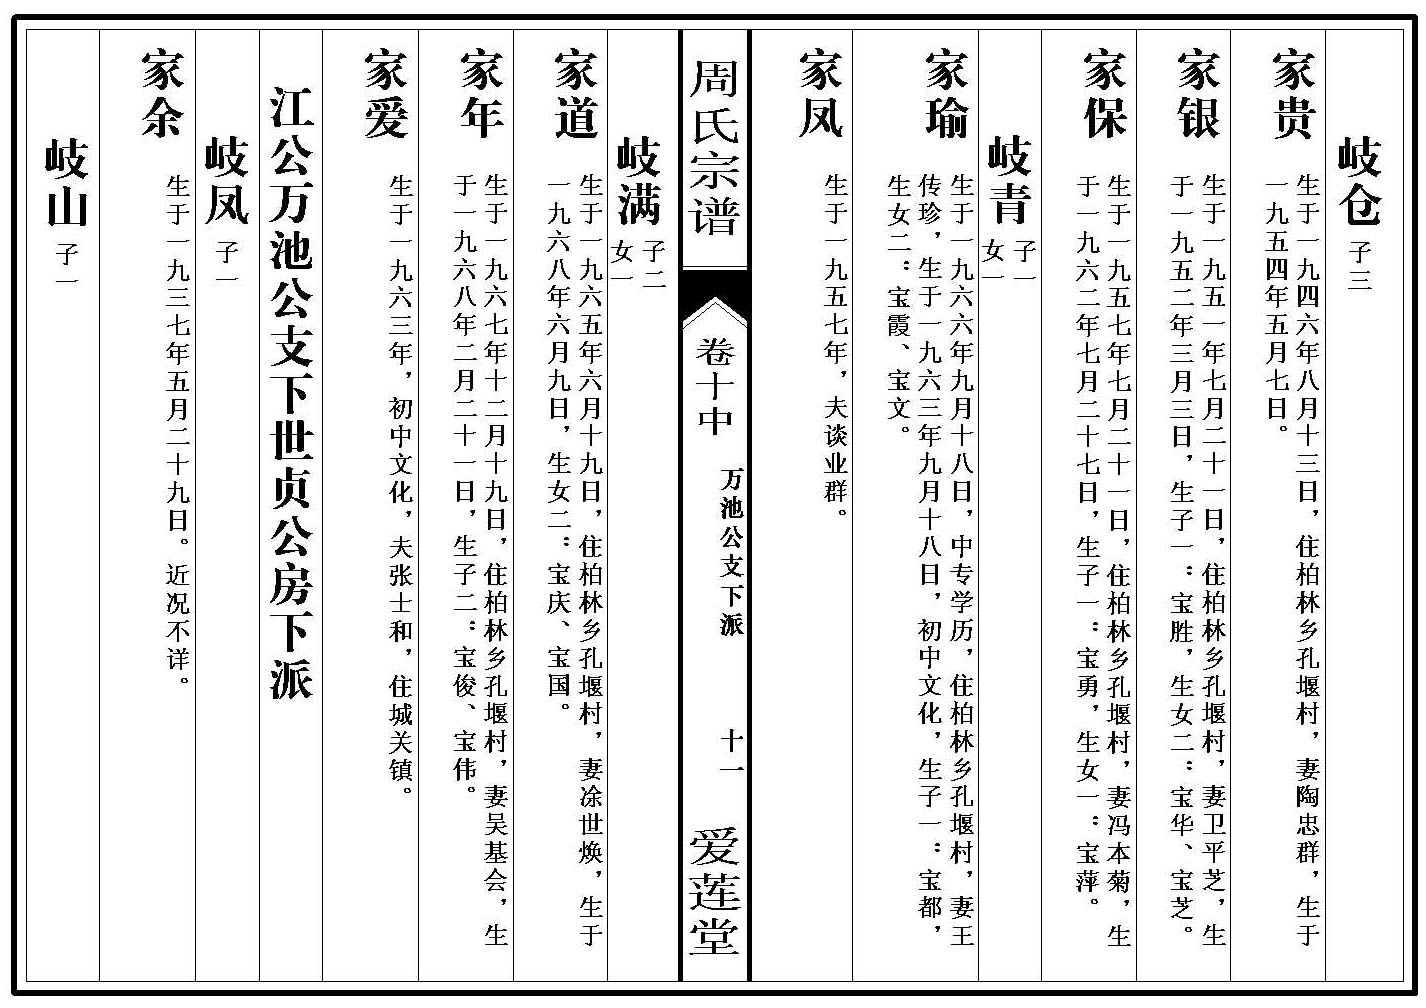 岐仓 子三
家贵
生于一九四六年八月十三日，住柏林乡孔堰村，妻陶忠群，生于
一九五四年五月七日。
家银
生于一九五一年七月二十一日，住柏林乡孔堰村，妻卫平芝，生
于一九五二年三月三日，生子一：宝胜，生女二：宝华、宝芝。
家保
生于一九五七年七月二十一日，住柏林乡孔堰村，妻冯本菊，生
于一九六二年七月二十七日，生子一：宝勇，生女一：宝萍。
岐青 子一
女一
家瑜
生于一九六六年九月十八日，中专学历，住柏林乡孔堰村，妻王
传珍，生于一九六三年九月十八日，初中文化，生子一：宝都，
生女二：宝霞、宝文。
家凤
生于一九五七年，夫谈业群。
周氏宗谱
卷十中
万池公支下派
十一
爱莲堂
岐满 子二
女一
家道
生于一九六五年六月十九日，住柏林乡孔堰村，妻凃世焕，生于
一九六八年六月九日，生女二：宝庆、宝国。
家年
生于一九六七年十二月十九日，住柏林乡孔堰村，妻吴基会，生
于一九六八年二月二十一日，生子二：宝俊、宝伟。
家爱
生于一九六三年，初中文化，夫张士和，住城关镇。
江公万池公支下世贞公房下派
岐凤 子一
家余
生于一九三七年五月二十九日。近况不详。
岐山 子一